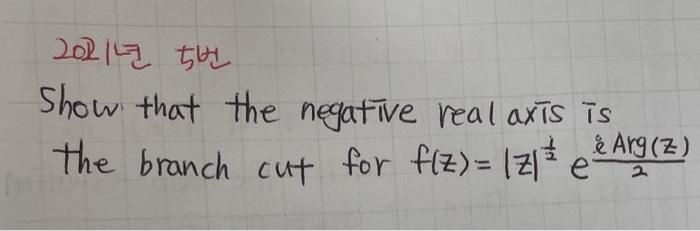 2021년 5번
Show that the negative real axis is
the branch cut for f(z) = |z|^{1/2} e^{\frac{i Arg(z)}{2}}